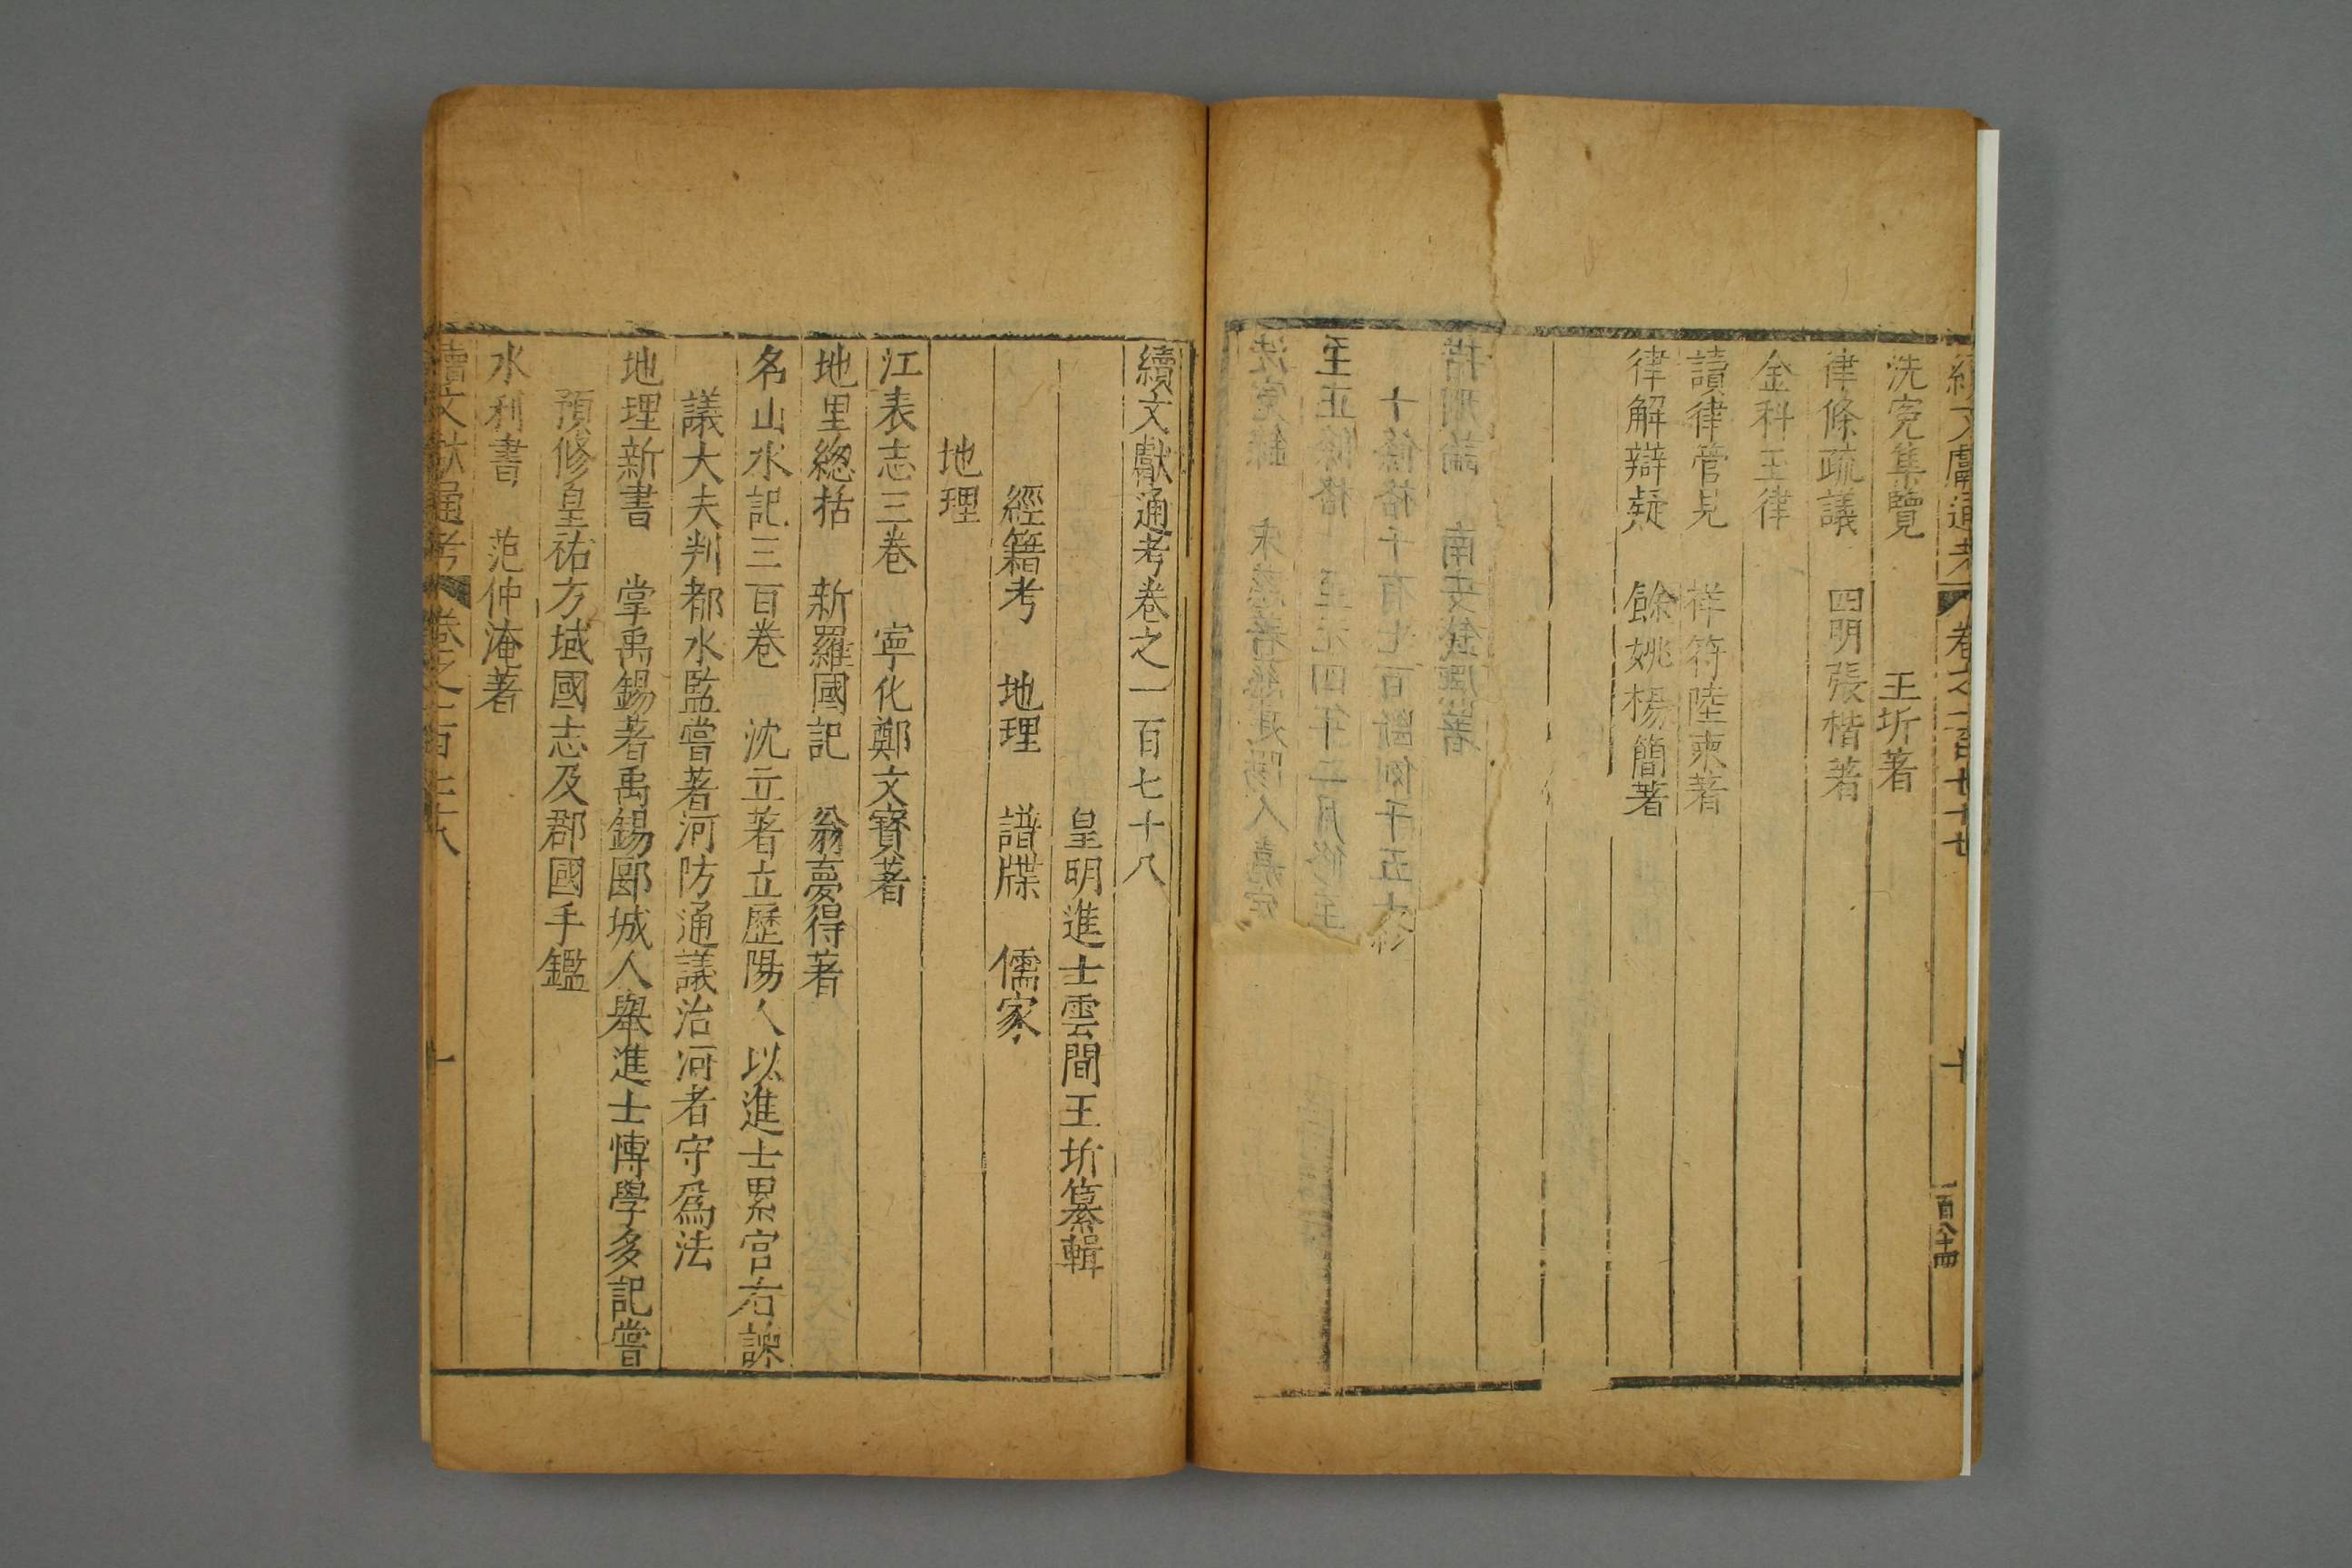 續文獻通考
卷之一百七十七
十
一百八十四
洗寃集覽 王圻著
律條疏議 四明張楷著
金科玉律
讀律管見 祥符陸柬著
律解辯疑 餘姚楊簡著
續文獻通考卷之一百七十八
皇明進士雲間王圻纂輯
經籍考 地理 譜牒 儒家
地理
江表志三卷 寧化鄭文寶著
地里緫括 新羅國記 翁夢得著
名山水記三百卷 沈立著立歷陽人以進士累官右諫
議大夫判都水監嘗著河防通議治河者守爲法
地理新書 掌禹錫著禹錫郾城人舉進士愽學多記嘗
預修皇祐方域國志及郡國手鑑
水利書 范仲淹著
續文獻通考 卷之一百七十八
一